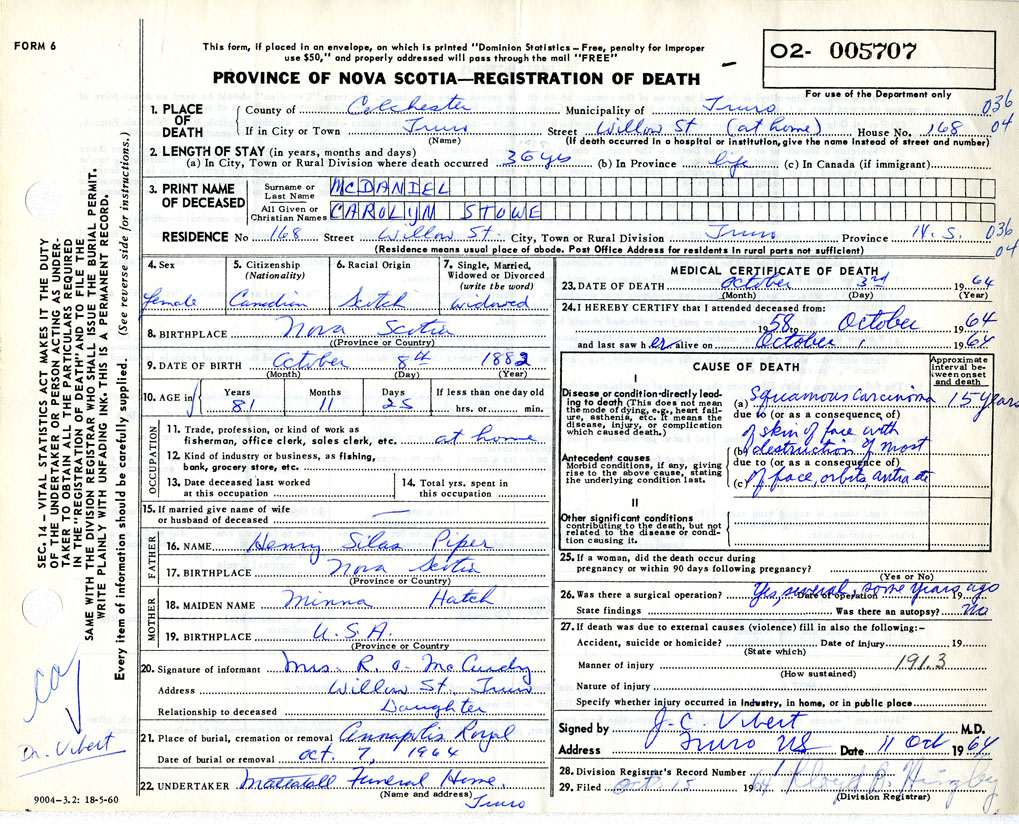 FORM 6
This form, if placed in an envelope, on which is printed "Dominion Statistics – Free, penalty for improper
use $50," and properly addressed will pass through the mail "FREE"
O2- 005707
For use of the Department only
PROVINCE OF NOVA SCOTIA—REGISTRATION OF DEATH
SEC. 14 – VITAL STATISTICS ACT MAKES IT THE DUTY
OF THE UNDERTAKER OR PERSON ACTING AS UNDER-
TAKER TO OBTAIN ALL THE PARTICULARS REQUIRED
IN THE "REGISTRATION OF DEATH" AND TO FILE THE
SAME WITH THE DIVISION REGISTRAR WHO SHALL ISSUE THE BURIAL PERMIT.
WRITE PLAINLY WITH UNFADING INK. THIS IS A PERMANENT RECORD.
Every item of information should be carefully supplied. (See reverse side for instructions.)
1. PLACE OF DEATH
County of Colchester Municipality of Truro 036
If in City or Town Truro Street Willow St (at home) House No. 168 04
(Name) (If death occurred in a hospital or institution, give the name instead of street and number)
2. LENGTH OF STAY (in years, months and days)
(a) In City, Town or Rural Division where death occurred 36 yrs (b) In Province life (c) In Canada (if immigrant)
3. PRINT NAME OF DECEASED
Surname or Last Name McDANIEL
All Given or Christian Names CAROLYN STOWE
RESIDENCE No 168 Street Willow St. City, Town or Rural Division Truro Province N.S. 036
04
(Residence means usual place of abode. Post Office Address for residents in rural parts not sufficient)
4. Sex
female
5. Citizenship
(Nationality)
Canadian
6. Racial Origin
Scotch
7. Single, Married,
Widowed or Divorced
(write the word)
widowed
8. BIRTHPLACE Nova Scotia
(Province or Country)
9. DATE OF BIRTH October 8th 1882
(Month) (Day) (Year)
10. AGE in
Years 81
Months 11
Days 25
If less than one day old
hrs. or min.
OCCUPATION
11. Trade, profession, or kind of work as
fisherman, office clerk, sales clerk, etc. at home
12. Kind of industry or business, as fishing,
bank, grocery store, etc.
13. Date deceased last worked
at this occupation
14. Total yrs. spent in
this occupation
15. If married give name of wife
or husband of deceased —
FATHER
16. NAME Henry Silas Piper
17. BIRTHPLACE Nova Scotia
(Province or Country)
MOTHER
18. MAIDEN NAME Minna Hatch
19. BIRTHPLACE U.S.A.
(Province or Country)
20. Signature of informant Mrs. R. O. McCurdy
Address Willow St. Truro
Relationship to deceased Daughter
21. Place of burial, cremation or removal Annapolis Royal
Date of burial or removal Oct. 7, 1964
22. UNDERTAKER Mattatall Funeral Home.
(Name and address) Truro
Dr. Vibert
9004-3.2: 18-5-60
MEDICAL CERTIFICATE OF DEATH
23. DATE OF DEATH October 3rd 1964
(Month) (Day) (Year)
24. I HEREBY CERTIFY that I attended deceased from:
1958 to October 1964
and last saw her alive on October 1, 1964
CAUSE OF DEATH
Approximate
interval be-
tween onset
and death
I
Disease or condition directly lead-
ing to death (This does not mean
the mode of dying, e.g., heart fail-
ure, asthenia, etc. It means the
disease, injury, or complication
which caused death.)
(a) Squamous carcinoma 15 years
due to (or as a consequence of)
of skin of face with
(b) destruction of most
due to (or as a consequence of)
(c) of face, orbits,
Antecedent causes
Morbid conditions, if any, giving
rise to the above cause, stating
the underlying condition last.
II
Other significant conditions
contributing to the death, but not
related to the disease or condi-
tion causing it.
25. If a woman, did the death occur during
pregnancy or within 90 days following pregnancy?
(Yes or No)
26. Was there a surgical operation? Yes, several, some years ago
Date of operation 19
State findings Was there an autopsy? No
27. If death was due to external causes (violence) fill in also the following:-
Accident, suicide or homicide? Date of injury 19
(State which)
Manner of injury 191.3
(How sustained)
Nature of injury
Specify whether injury occurred in industry, in home, or in public place
Signed by J. C. Vibert M.D.
Address Truro NS Date 11 Oct 1964
28. Division Registrar's Record Number
29. Filed Oct 15 1964 Lloyd
(Division Registrar)